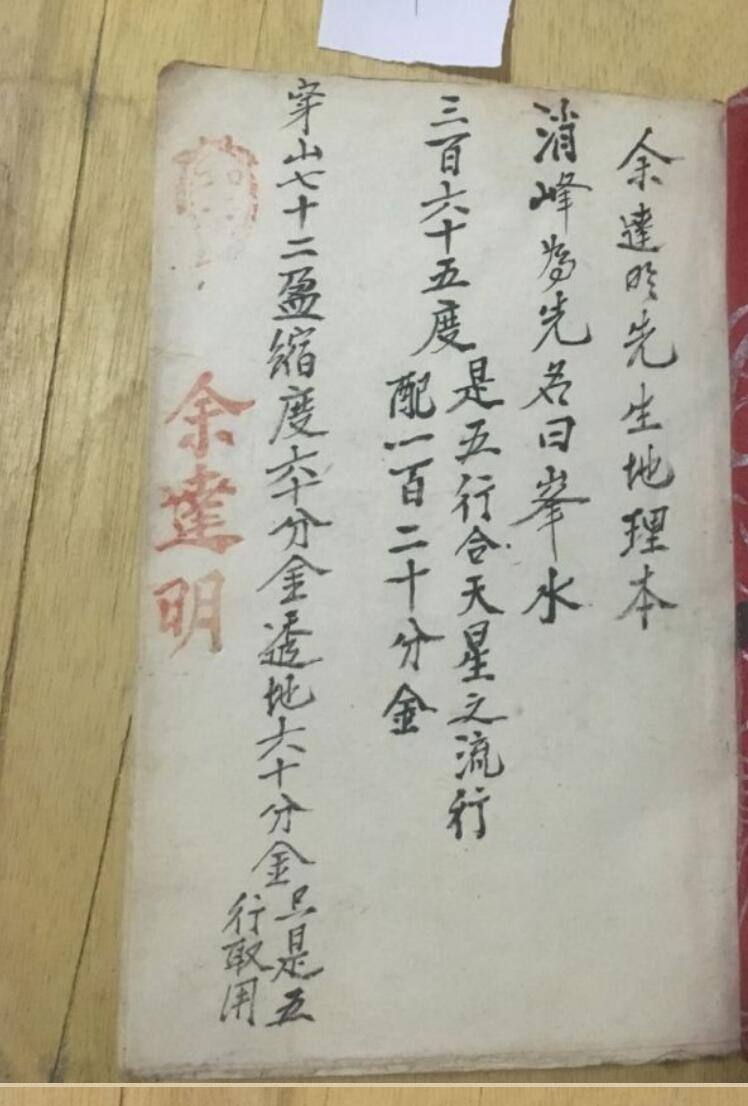 余達明先生地理本
消峰為先名曰峯水
三百六十五度
是五行合天星之流行
配一百二十分金
穿山七十二盈縮度六十分金透地六十分金
只是五
行取用
余達明